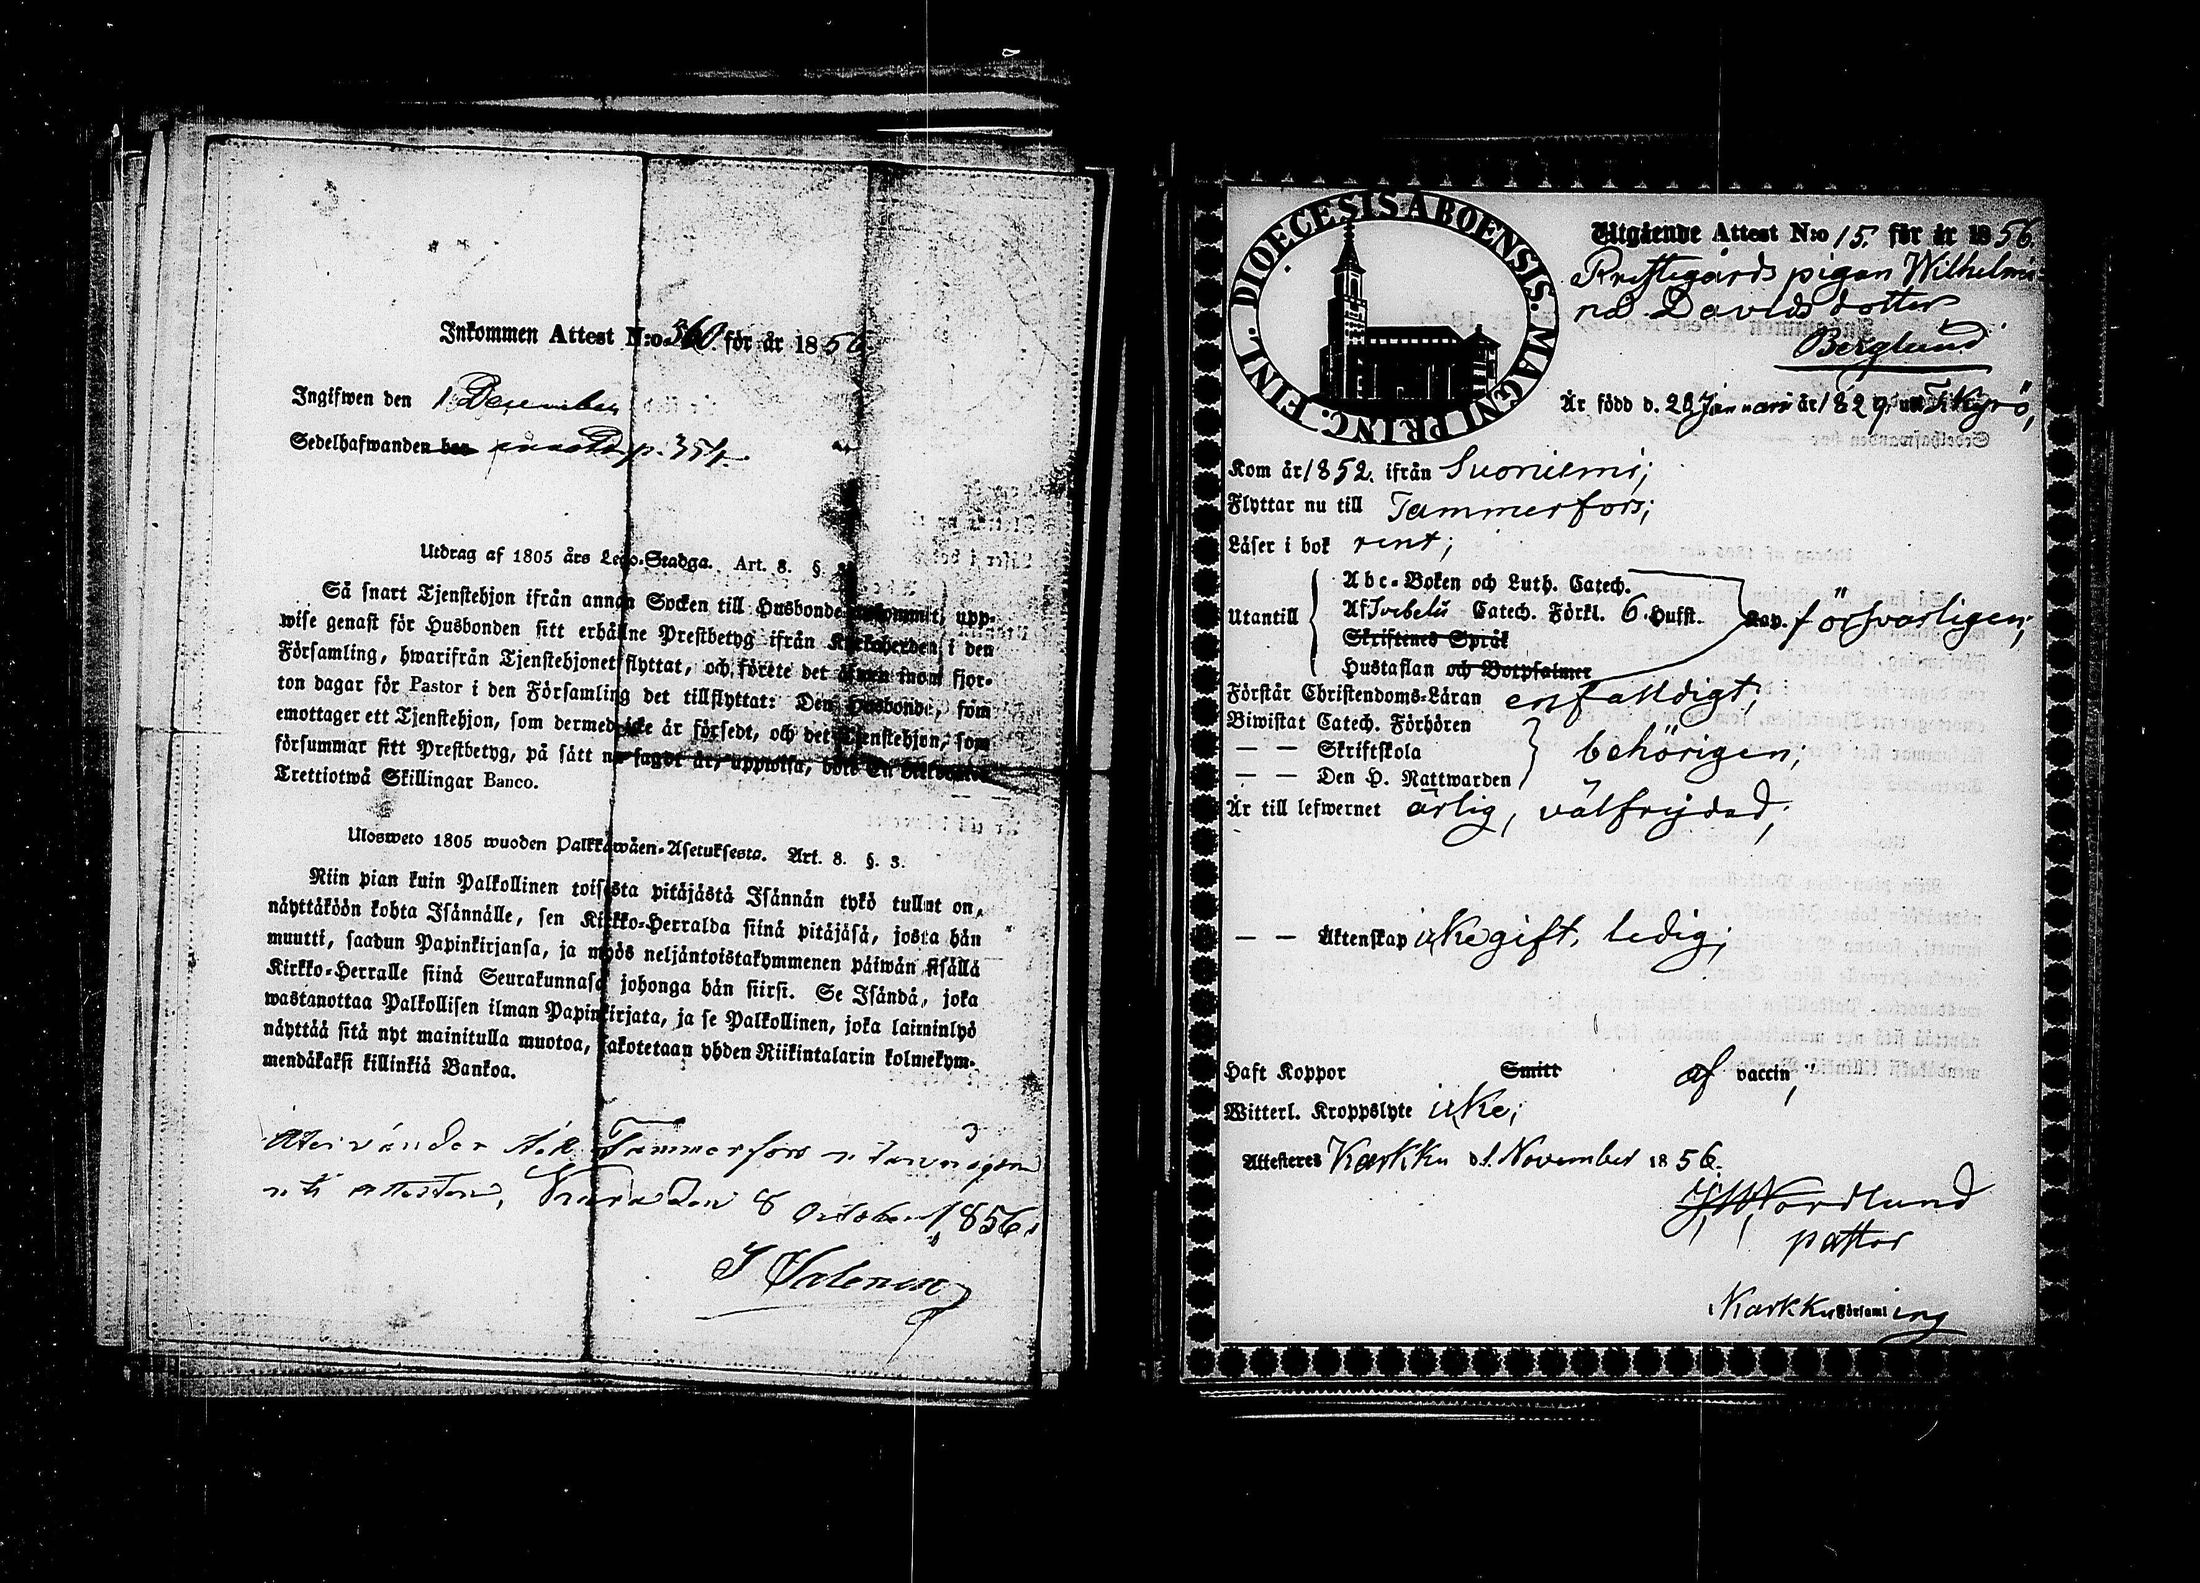 Inkommen Attest N:o 560 för år 1856.
Ingifwen den 1 December
Sedelhafwanden har p. 354.
Utdrag af 1805 års Lego-Stadga. Art. 8. §.
Så snart Tjenstehjon ifrån annan Socken till Husbonde ankommit, upp-
wise genast för Husbonden sitt erhållne Prestbetyg ifrån Kyrkoherden i den
Församling, hwarifrån Tjenstehjonet flyttat, och förete det äfwen inom fjor-
ton dagar för Pastor i den Församling det tillflyttat: Den Husbonde, som
emottager ett Tjenstehjon, som dermed icke är försedt, och det Tjenstehjon, som
försummar sitt Prestbetyg, på sätt nu sagdt är, uppwisa, böte En
Trettiotwå Skillingar Banco.
Ulosweto 1805 wuoden Palkkawäen-Asetuksesta. Art. 8. §. 3.
Niin pian kuin Palkollinen toisesta pitäjästä Isännän tykö tullut on,
näyttäköön kohta Isännälle, sen Kirkko-Herralda siinä pitäjäsä, josta hän
muutti, saadun Papinkirjansa, ja myös neljäntoistakymmenen päiwän sisällä
Kirkko-Herralle siinä Seurakunnasa johonga hän siirsi. Se Isändä, joka
wastanottaa Palkollisen ilman Papinkirjata, ja se Palkollinen, joka laiminlyö
näyttää sitä nyt mainitulla muotoa, sakotetaan yhden Riikintalarin kolmekym-
mendäkaksi killinkiä Bankoa.
Återvänder till Tammerfors
attesten, den 8 October 1856.
DIOECESIS ABOENSIS. MAGNI PRINC. FINL.
Utgående Attest N:o 15. för år 1856.
Prestegårds pigan Wilhelmi-
na Davidsdotter
Berglund
Är född d. 28 Januari år 1829. uti T Kyrö,
Kom år 1852. ifrån Suoniemi;
Flyttar nu till Tammerfors;
Läser i bok rent;
Utantill
Abc-Boken och Luth. Catech.
Af Svebelii Catech. Förkl. 6. Hufst. Kap. försvarligen;
Skriftenes Språk
Hustaflan och Botpsalmer
Förstår Christendoms-Läran enfalldigt;
Biwistat Catech. Förhören
— — Skriftskola behörigen;
— — Den H. Nattwarden
Är till lefwernet ärlig, välfrejdad;
— — Äktenskap icke gift, ledig;
Haft Koppor Smitt af vaccin;
Witterl. Kroppslyte icke;
Attesteras Karkku d 1. November 1856.
Nordlund
pastor
i Karkku Församling